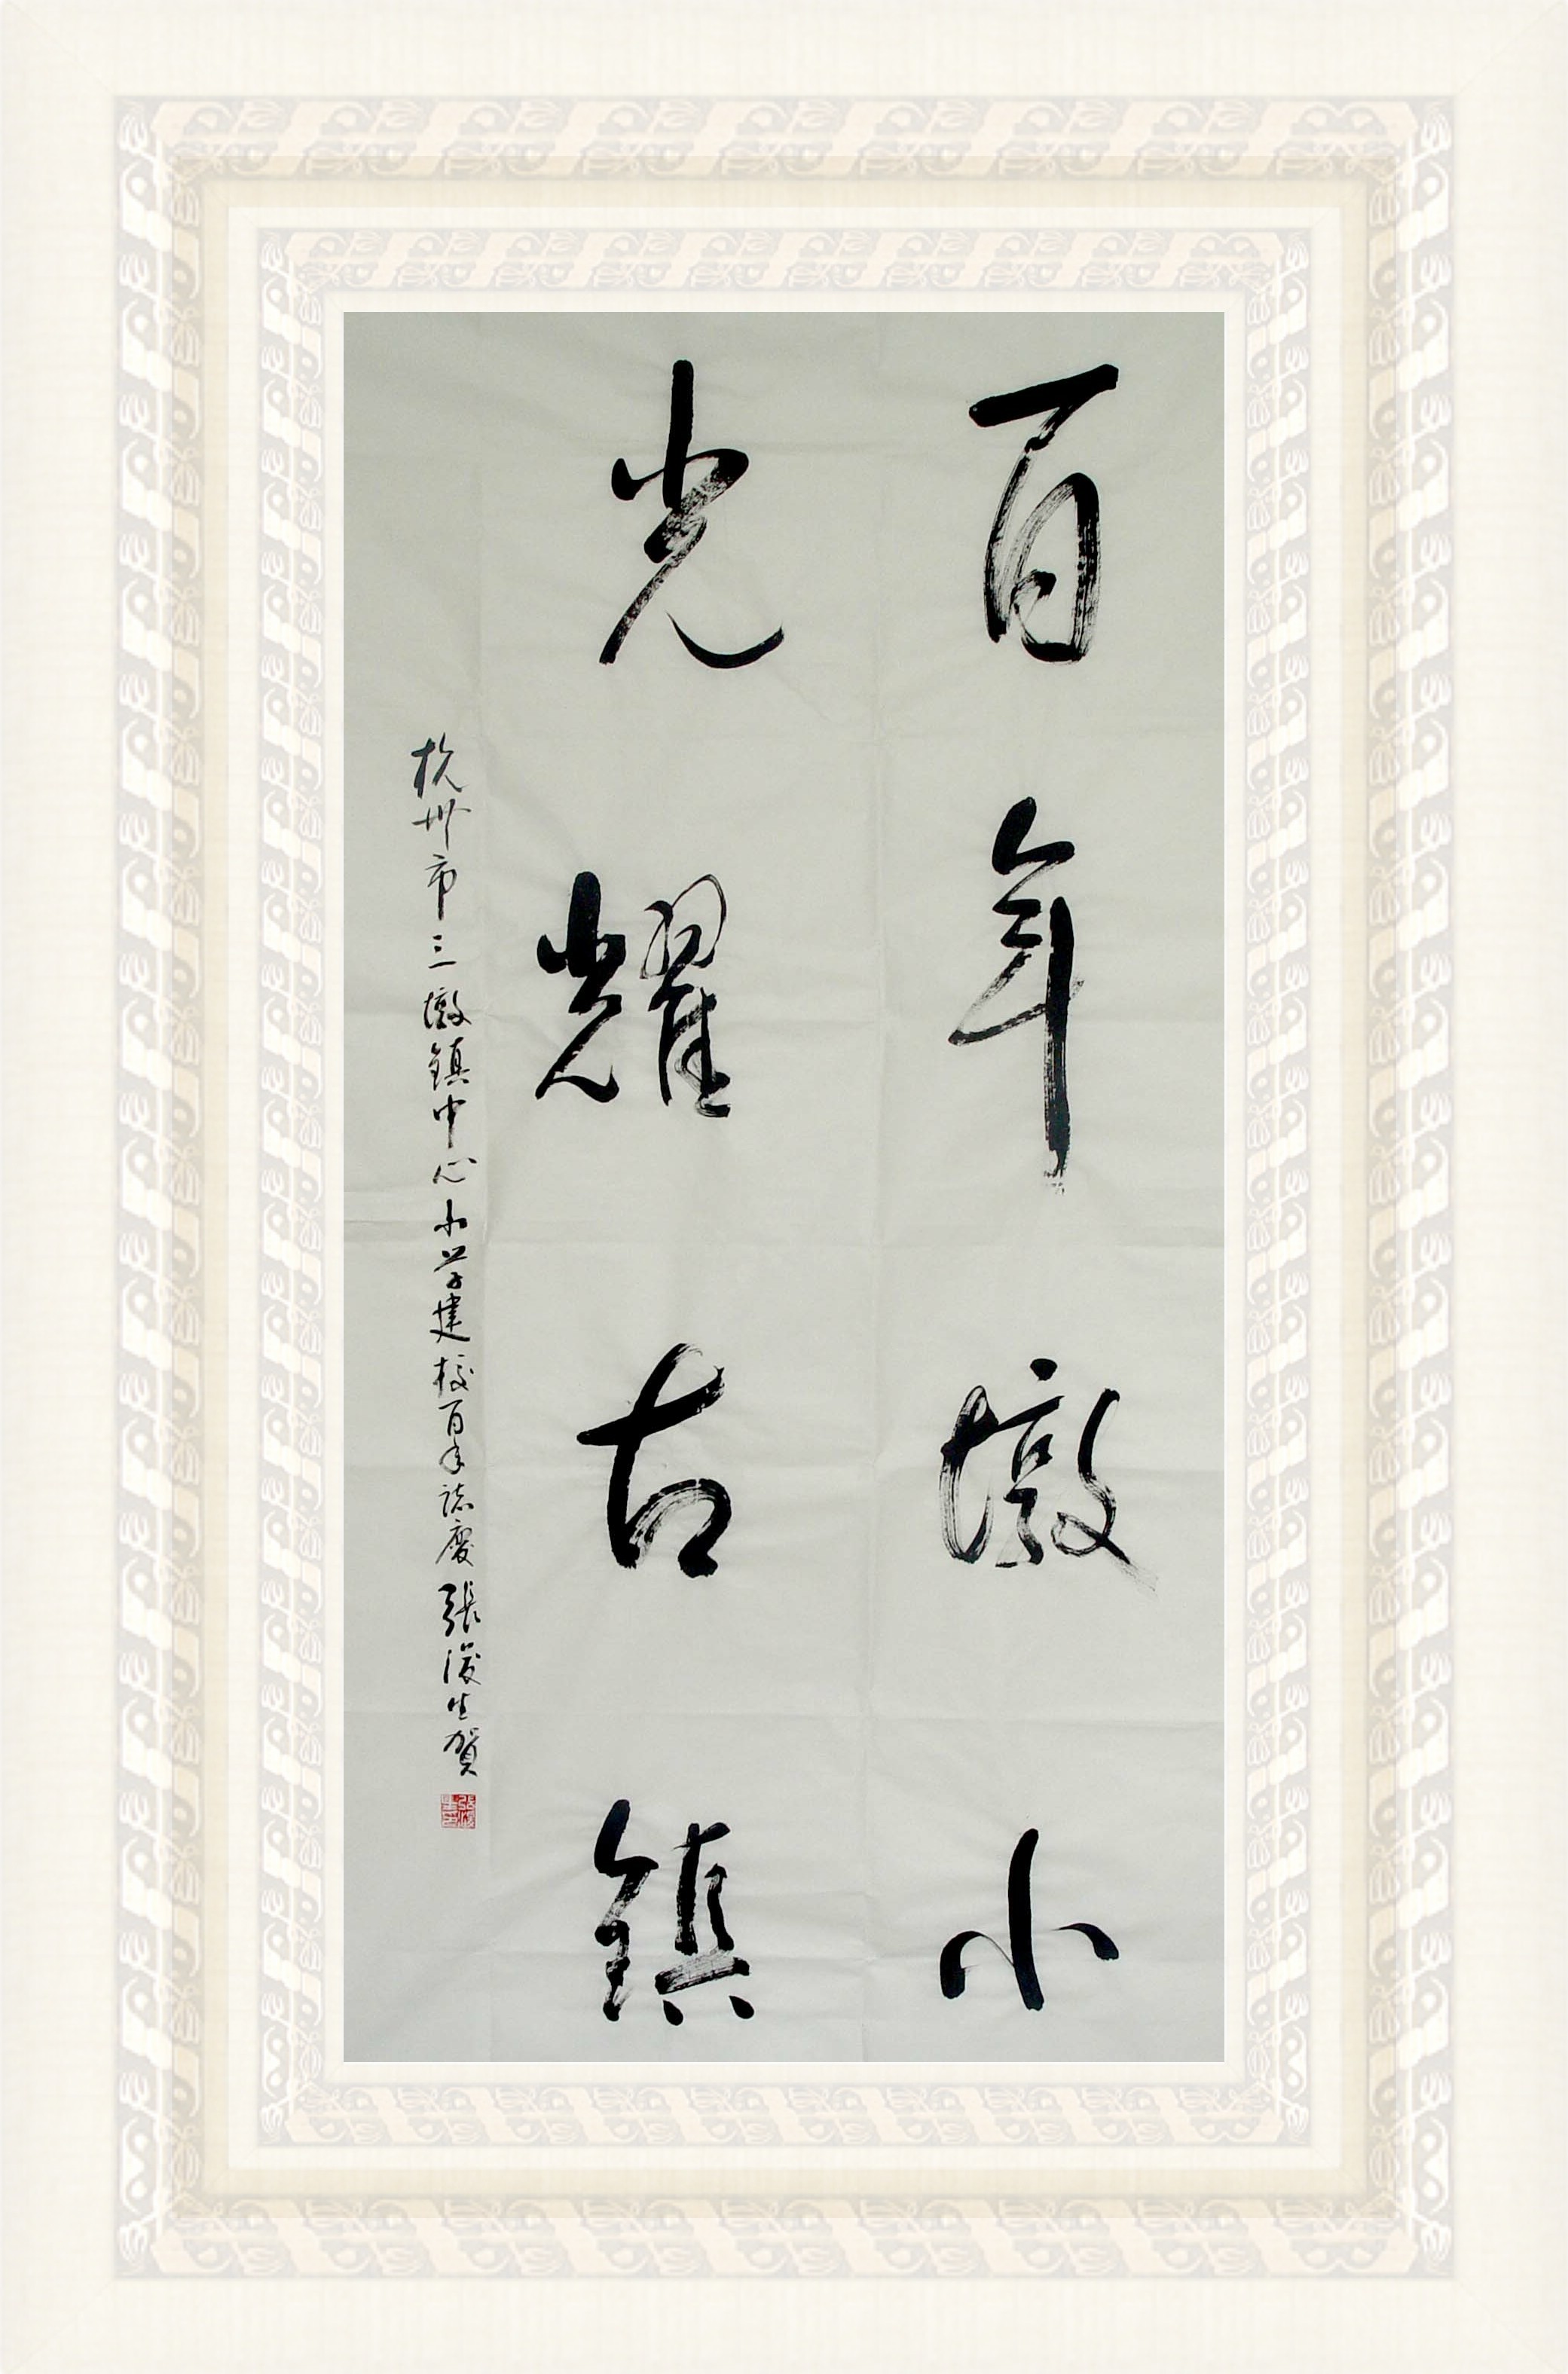 百年墩小
光耀古鎮
杭州市三墩鎮中心小学建校百年誌慶 張浚生賀